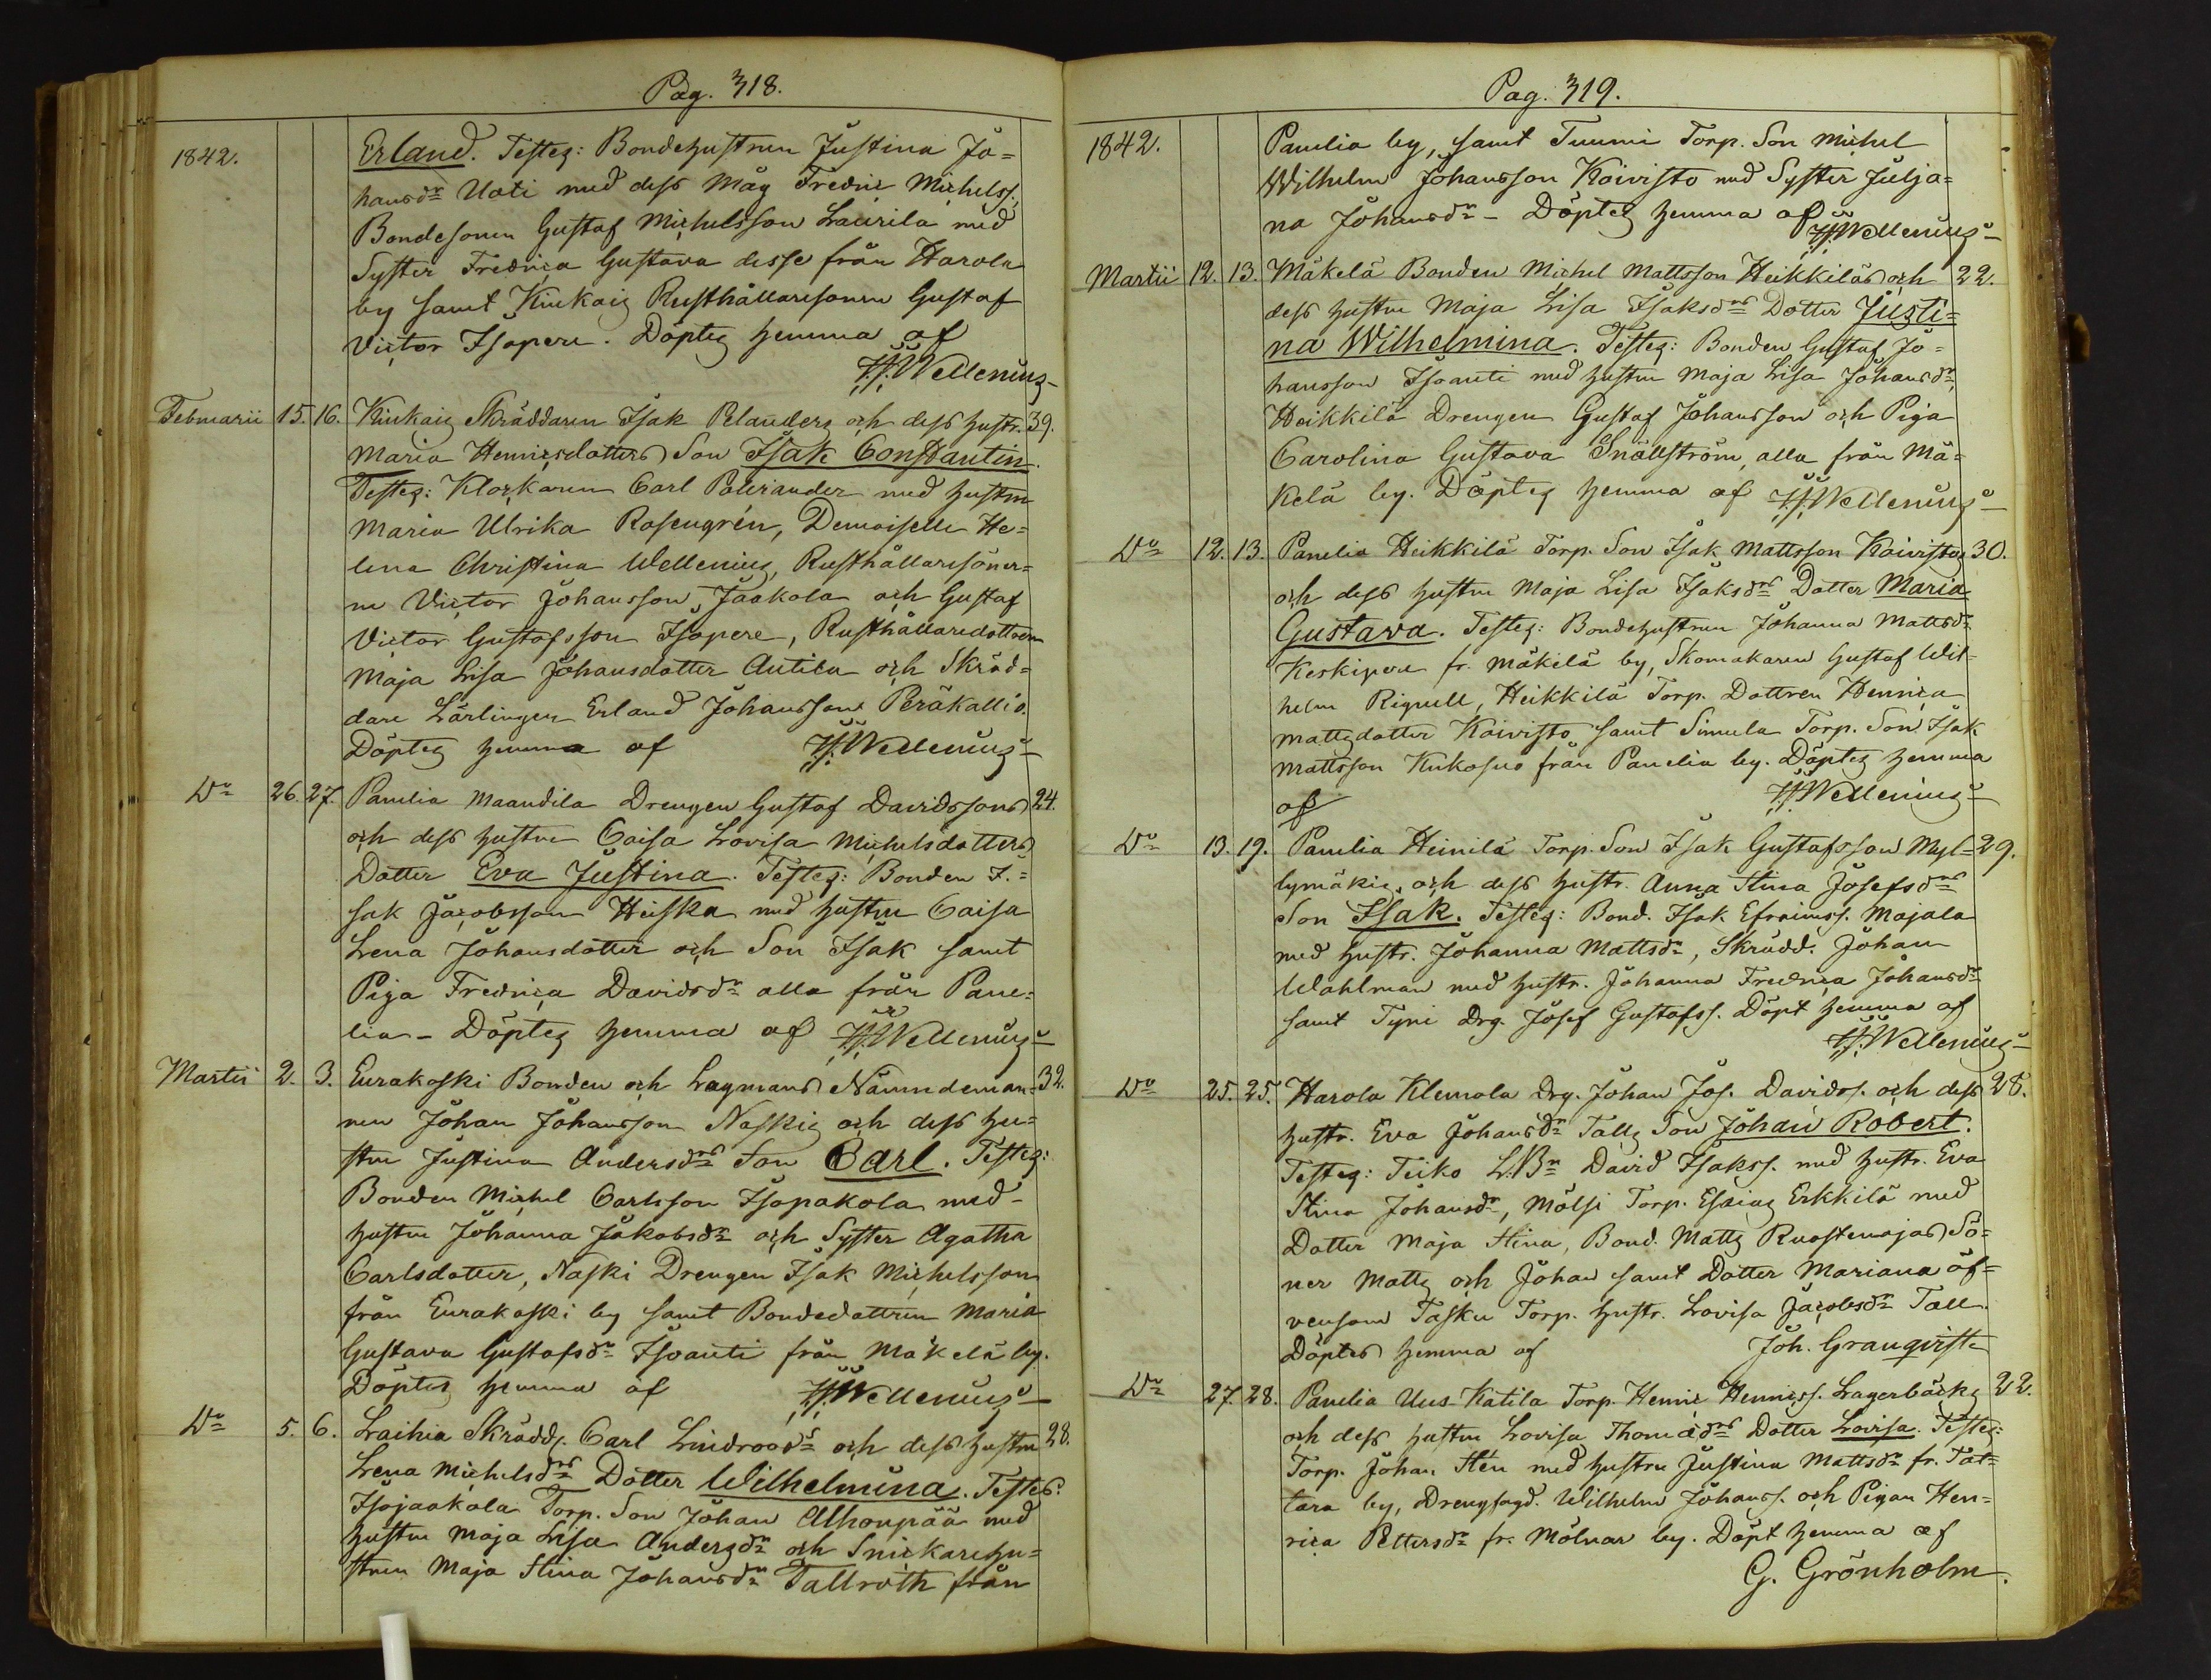 Pag. 318.
1842.
Erland. Testes: Bondehustrun Justina Jo=
hansdr Uoti med dess måg Fredric Michelss.,
Bondesonen Gustaf Michelsson Laurila med
Syster Fredrica Gustava desse från Harola
by samt Kiukais Rusthållaresonen Gustaf
Victor Isopere. Döptes hemma af
H.H. Wellenius
Februarii 15. 16. Kiukais Skräddaren Isak Pelanders och dess hustr. 39.
Maria Henricsdotters Son Isak Constantin.
Testes: Klockaren Carl Palviander med hustru
Maria Ulrika Rosengrén, Demoiselle He=
lena Christina Wellenius, Rusthållaresöner=
ne Victor Johansson Jaakola och Gustaf
Victor Gustafsson Isopere, Rusthållaredottren
Maja Lisa Johansdotter Antila och Skräd=
dare Lärlingen Erland Johansson Peräkallio.
Döptes hemma af H.H. Wellenius
Do 26. 27. Panelia Maandila Drengen Gustaf Davidssons 24.
och dess hustru Caisa Lovisa Michelsdotters
Dotter Eva Justina. Testes: Bonden I.=
sak Jacobsson Heiska med hustru Caisa
Lena Johansdotter och Son Isak samt
Piga Fredrica Davidsdr alla från Pane=
lia - Döptes hemma af H.H. Wellenius
Martii 2. 3. Eurakoski Bonden och Lagmans Nämndeman= 32.
nen Johan Johansson Naskis och dess hu=
stru Justina Andersdrs Son Carl. Testes:
Bonden Michel Carlsson Isopakola med
hustru Johanna Jakobsdr och Syster Agatha
Carlsdotter, Naski Drengen Isak Michelsson
från Eurakoski by samt Bondedottren Maria
Gustava Gustafsdr Isoanti från Mäkelä by.
Döptes hemma af H.H. Wellenius
Do 5. 6. Laihia Skrädd. Carl Lindroos's och dess hustru 28.
Lena Michelsdrs Dotter Wilhelmina. Testes:
Isojaakola Torp. Son Johan Alhonpää med
hustru Maja Lisa Andersdr och Snickarehu=
strun Maja Stina Johansdr Tallroth från
Pag. 319.
1842.
Panelia by, samt Tuumi Torp. Son Michel
Wilhelm Johansson Koivisto med Syster Julja=
na Johansdr - Döptes hemma af H.H. Wellenius
Martii 12. 13. Mäkelä Bonden Michel Mattsson Heikkiläs och 22.
dess hustru Maja Lisa Isaksdrs Dotter Justi=
na Wilhelmina. Testes: Bonden Gustaf Jo=
hansson Isoanti med hustru Maja Lisa Johansdr,
Heikkilä Drengen Gustaf Johansson och Piga
Carolina Gustava Snällström, alla från Mä=
kelä by. Döptes hemma af H.H. Wellenius
Do 12. 13. Panelia Heikkilä Torp. Son Isak Mattsson Koivistos 30.
och dess hustru Maja Lisa Isaksdrs Dotter Maria
Gustava. Testes: Bondehustrun Johanna Mattsdr
Keskipere fr. Mäkelä by, Skomakaren Gustaf Wil=
helm Rignell, Heikkilä Torp. Dottren Henrica
Mattsdotter Koivisto samt Simula Torp. Son Isak
Mattsson Kukosuo från Panelia by. Döptes hemma
af H.H. Wellenius
Do 13. 19. Panelia Heinilä Torp. Son Isak Gustafsson Myl= 29.
lymäkis och dess hustr. Anna Stina Josefsdrs
Son Isak. Testes: Bond. Isak Efraimss. Majala
med hustr. Johanna Mattsdr, Skrädd. Johan
Wahlman med hustr. Johanna Fredrica Johansdr
samt Tyni Drg. Josef Gustafss. Döpt hemma af
H.H. Wellenius
Do 25. 25. Harola Klemola Drg. Johan Jos. Davidss. och dess 28.
hustr. Eva Johansdr Talls Son Johan Robert.
Testes: Tuiko L.Bn David Isakss. med hustr. Eva
Stina Johansdr, Mölsi Torp. Esaias Erkkilä med
Dotter Maja Stina, Bond. Matts Ruostemajas Sö=
ner Matts och Johan samt Dotter Mariana äf=
vensom Tasku Torp. hustr. Lovisa Jacobsdr Tall.
Döptes hemma af Joh. Granqvist
Do 27. 28. Panelia Uus-Katila Torp. Henric Henricss. Lagerbäcks 22.
och dess hustru Lovisa Thomædrs Dotter Lovisa. Testes:
Torp. Johan Stén med hustru Justina Mattsdr fr. Tat=
tara by, Drengfogd. Wilhelm Johanss. och Pigan Hen=
rica Pettersdr fr. Mölnar by. Döpt hemma af
G. Grönholm.